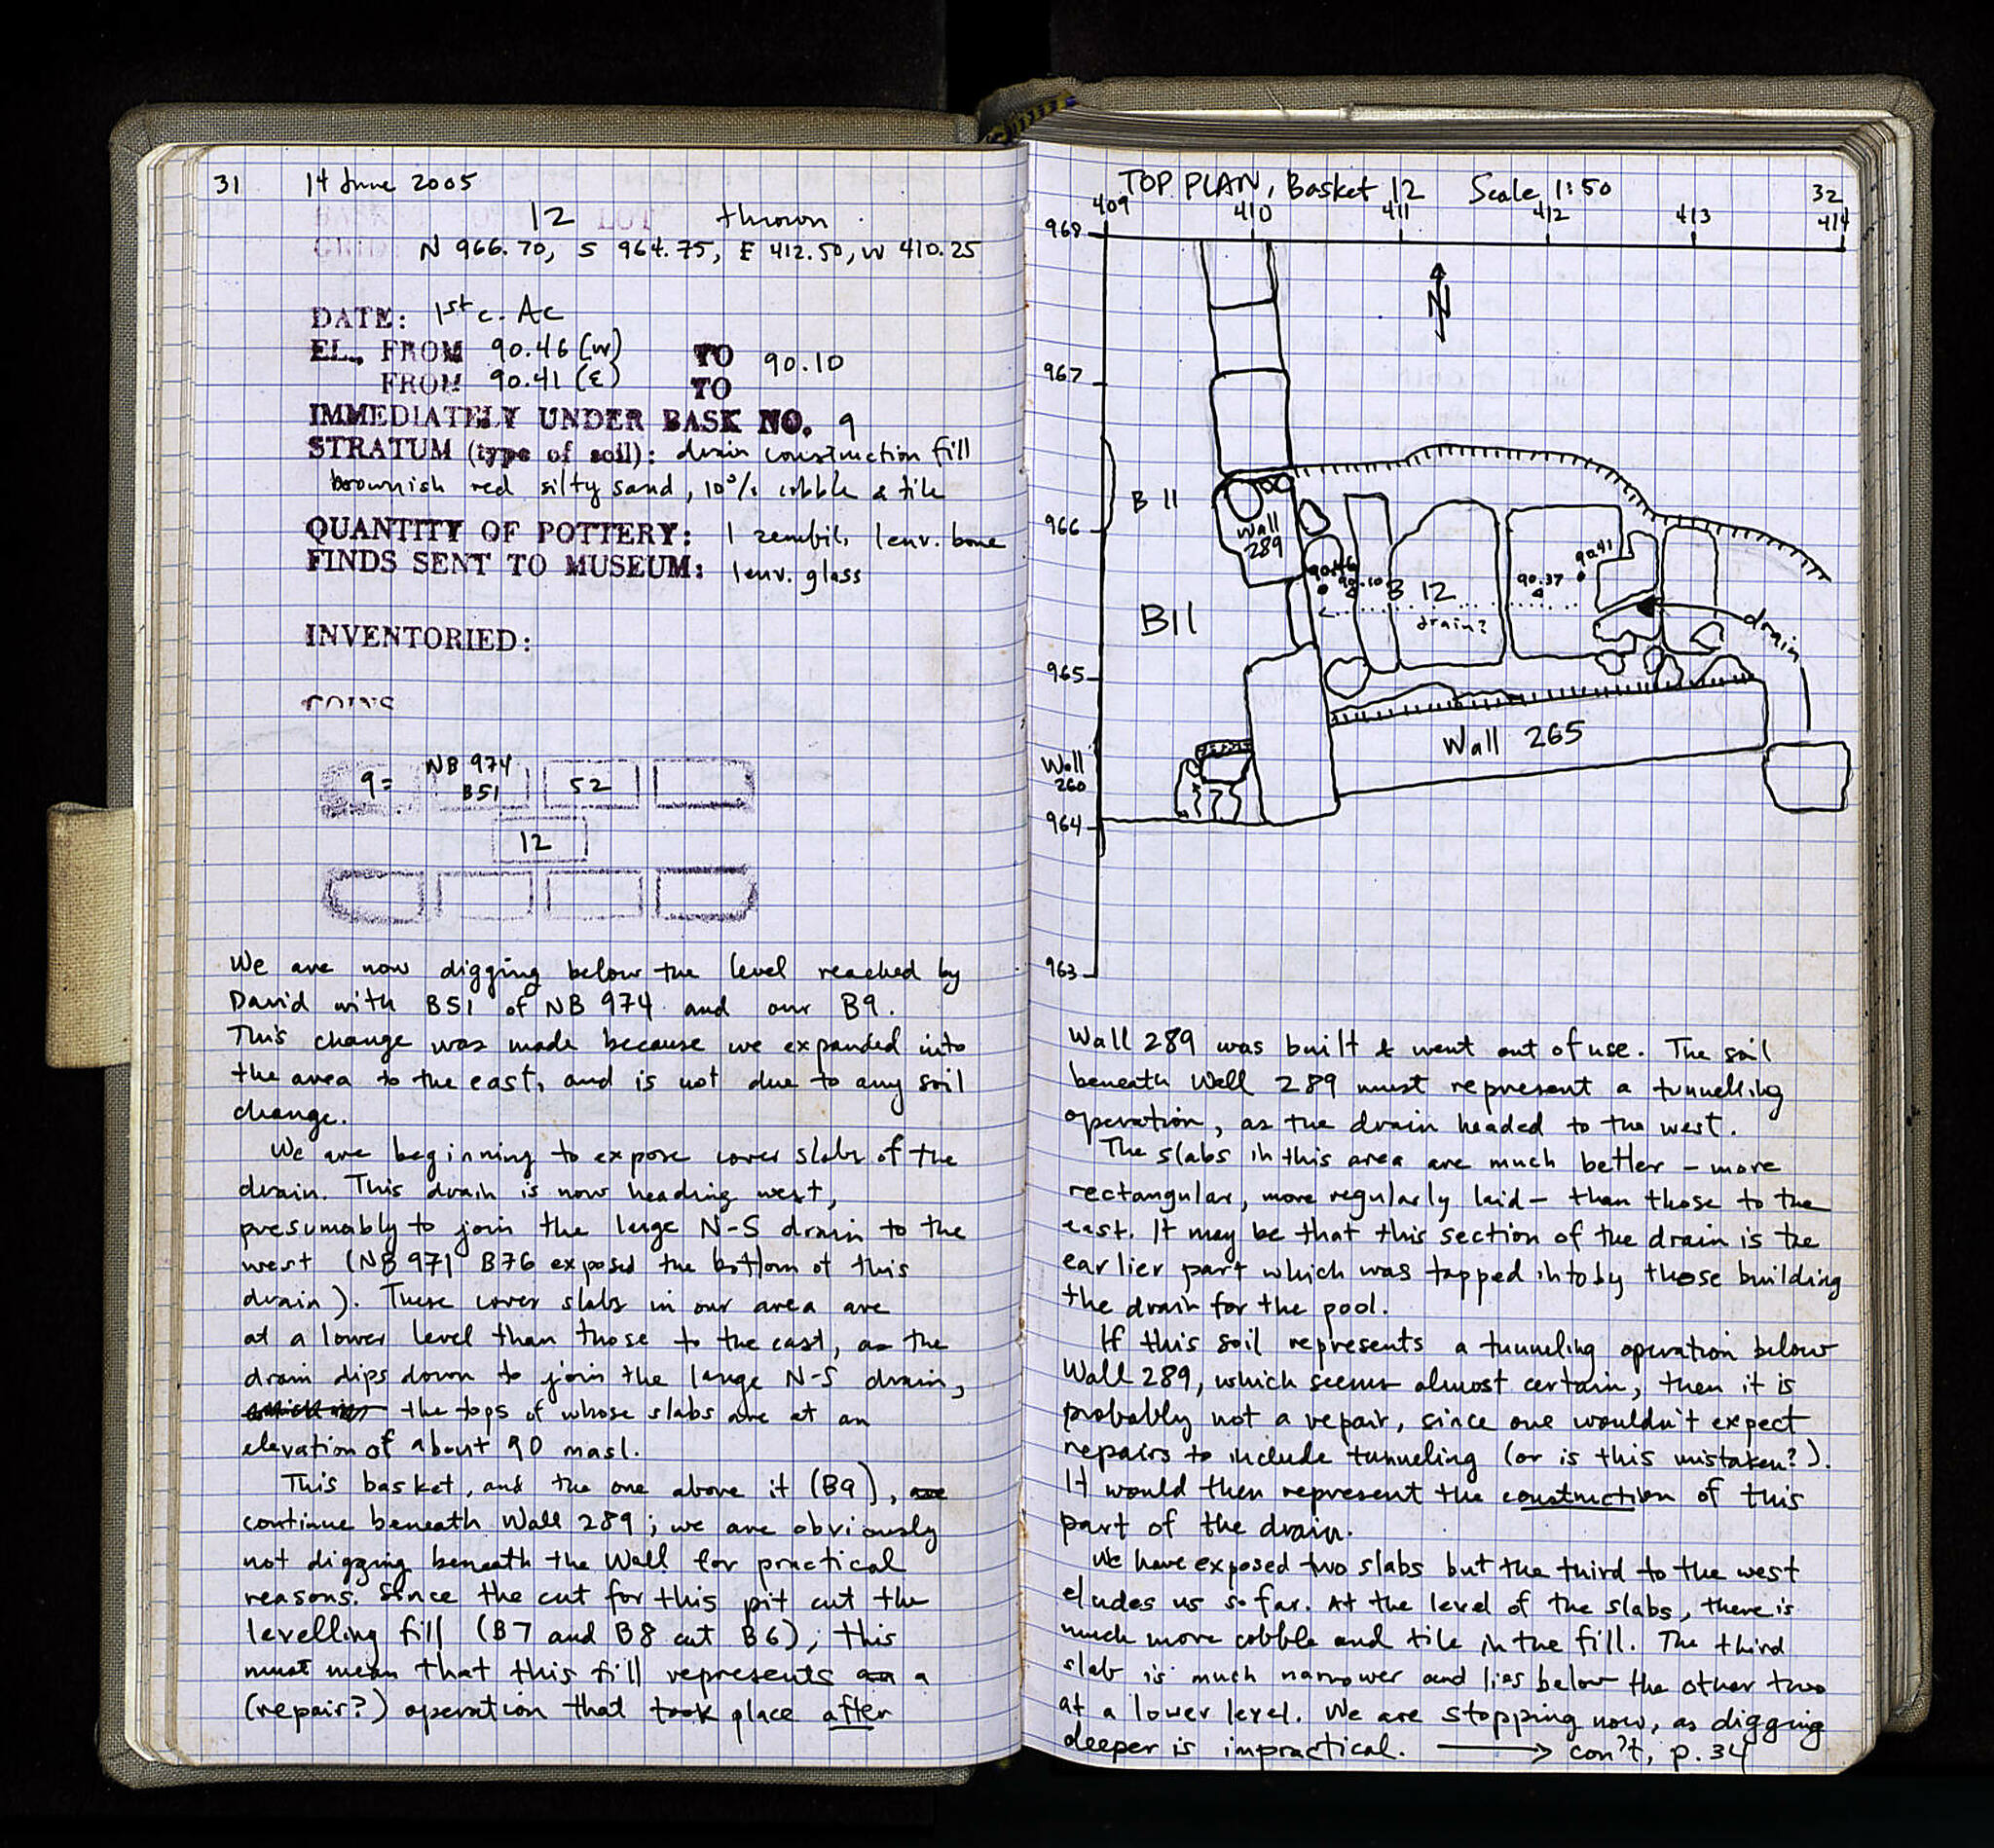 31 14 June 2005
BASK 12 LOT thrown
GRID N 966.70, S 964.75, E 412.50, W 410.25
DATE: 1st c. AC
EL., FROM 90.46 (W) TO 90.10
FROM 90.41 (E) TO
IMMEDIATELY UNDER BASK NO. 9
STRATUM (type of soil): drain construction fill
brownish red silty sand, 10% cobble & tile
QUANTITY OF POTTERY: 1 zembil, 1 env. bone
FINDS SENT TO MUSEUM: 1 env. glass
INVENTORIED:
COINS
9= NB 974 B51 52
12
We are now digging below the level reached by
David with B51 of NB 974 and our B9.
This change was made because we expanded into
the area to the east, and is not due to any soil
change.
We are beginning to expose cover slabs of the
drain. This drain is now heading west,
presumably to join the large N-S drain to the
west (NB 971 B76 exposed the bottom of this
drain). These cover slabs in our area are
at a lower level than those to the east, as the
drain dips down to join the large N-S drain,
the tops of whose slabs are at an
elevation of about 90 masl.
This basket, and the one above it (B9), are
continue beneath Wall 289; we are obviously
not digging beneath the Wall for practical
reasons. Since the cut for this pit cut the
levelling fill (B7 and B8 cut B6), this
must mean that this fill represents an a
(repair?) operation that took place after
TOP PLAN, Basket 12 Scale 1:50 32
409 410 411 412 413 414
968
N
967
B 11
966
Wall
289
90.46
90.10
B 12
90.37
90.41
drain?
drain
B11
965
Wall 265
Wall
260
964
963
Wall 289 was built & went out of use. The soil
beneath Wall 289 must represent a tunnelling
operation, as the drain headed to the west.
The slabs in this area are much better – more
rectangular, more regularly laid – than those to the
east. It may be that this section of the drain is the
earlier part which was tapped into by those building
the drain for the pool.
If this soil represents a tunneling operation below
Wall 289, which seems almost certain, then it is
probably not a repair, since one wouldn't expect
repairs to include tunneling (or is this mistaken?).
It would then represent the construction of this
part of the drain.
We have exposed two slabs but the third to the west
eludes us so far. At the level of the slabs, there is
much more cobble and tile in the fill. The third
slab is much narrower and lies below the other two
at a lower level. We are stopping now, as digging
deeper is impractical. ⟶ con't, p. 34